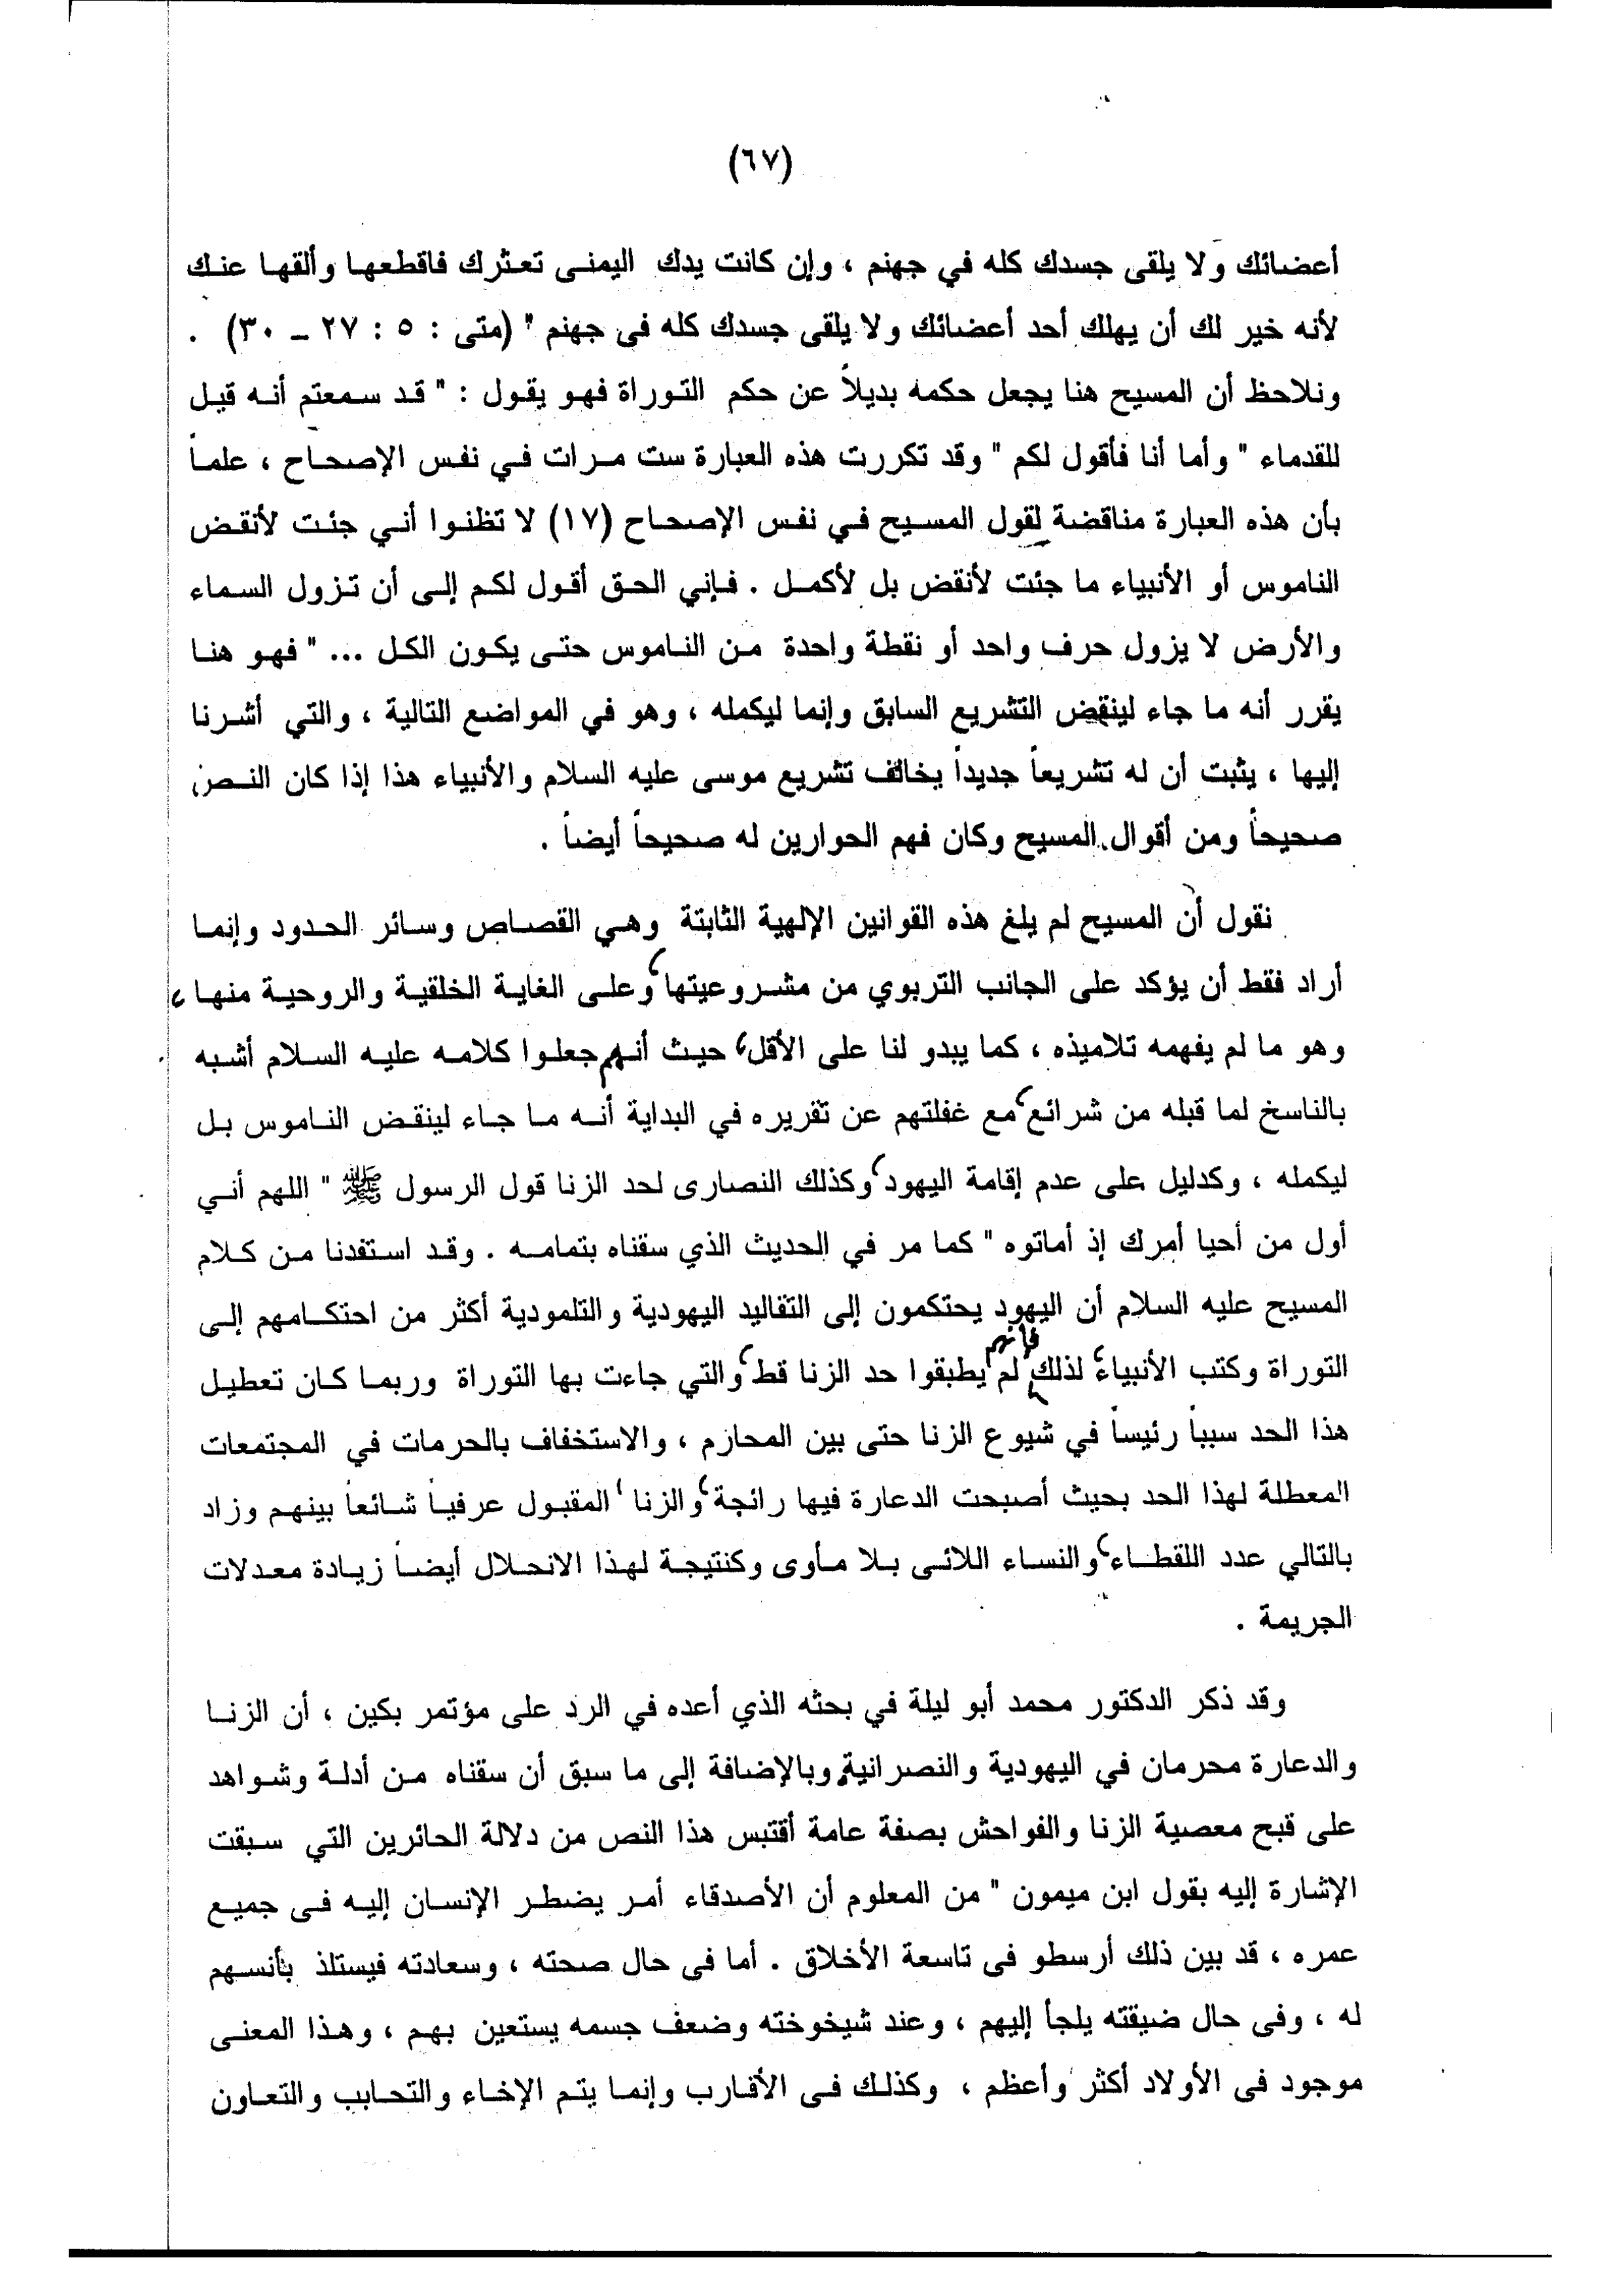 (٦٧)
أعضائك ولا يلقى جسدك كله في جهنم ، وإن كانت يدك اليمنى تعثرك فاقطعها وألقها عنك
لأنه خير لك أن يهلك أحد أعضائك ولا يلقى جسدك كله فى جهنم " (متى : ٥ : ٢٧ – ٣٠) .
ونلاحظ أن المسيح هنا يجعل حكمه بديلاً عن حكم التوراة فهو يقول : " قد سمعتم أنه قيل
للقدماء " وأما أنا فأقول لكم " وقد تكررت هذه العبارة ست مرات في نفس الإصحاح ، علماً
بأن هذه العبارة مناقضة لقول المسيح في نفس الإصحاح (١٧) لا تظنوا أني جئت لأنقض
الناموس أو الأنبياء ما جئت لأنقض بل لأكمل . فإني الحق أقول لكم إلى أن تزول السماء
والأرض لا يزول حرف واحد أو نقطة واحدة من الناموس حتى يكون الكل ... " فهو هنا
يقرر أنه ما جاء لينقض التشريع السابق وإنما ليكمله ، وهو في المواضع التالية ، والتي أشرنا
إليها ، يثبت أن له تشريعاً جديداً يخالف تشريع موسى عليه السلام والأنبياء هذا إذا كان النص
صحيحاً ومن أقوال المسيح وكان فهم الحوارين له صحيحاً أيضاً .
نقول أن المسيح لم يلغ هذه القوانين الإلهية الثابتة وهي القصاص وسائر الحدود وإنما
أراد فقط أن يؤكد على الجانب التربوي من مشروعيتها ، وعلى الغاية الخلقية والروحية منها ،
وهو ما لم يفهمه تلاميذه ، كما يبدو لنا على الأقل ، حيث أنهم جعلوا كلامه عليه السلام أشبه
بالناسخ لما قبله من شرائع ، مع غفلتهم عن تقريره في البداية أنه ما جاء لينقض الناموس بل
ليكمله ، وكدليل على عدم إقامة اليهود ، وكذلك النصارى لحد الزنا قول الرسول ﷺ " اللهم أني
أول من أحيا أمرك إذ أماتوه " كما مر في الحديث الذي سقناه بتمامه . وقد استفدنا من كلام
المسيح عليه السلام أن اليهود يحتكمون إلى التقاليد اليهودية والتلمودية أكثر من احتكامهم إلى
التوراة وكتب الأنبياء ، لذلك فإنهم لم يطبقوا حد الزنا قط ، والتي جاءت بها التوراة وربما كان تعطيل
هذا الحد سبباً رئيساً في شيوع الزنا حتى بين المحارم ، والاستخفاف بالحرمات في المجتمعات
المعطلة لهذا الحد بحيث أصبحت الدعارة فيها رائجة ، والزنا المقبول عرفياً شائعاً بينهم وزاد
بالتالي عدد اللقطاء ، والنساء اللائى بلا مأوى وكنتيجة لهذا الانحلال أيضاً زيادة معدلات
الجريمة .
وقد ذكر الدكتور محمد أبو ليلة في بحثه الذي أعده في الرد على مؤتمر بكين ، أن الزنا
والدعارة محرمان في اليهودية والنصرانية ، وبالإضافة إلى ما سبق أن سقناه من أدلة وشواهد
على قبح معصية الزنا والفواحش بصفة عامة أقتبس هذا النص من دلالة الحائرين التي سبقت
الإشارة إليه بقول ابن ميمون " من المعلوم أن الأصدقاء أمر يضطر الإنسان إليه فى جميع
عمره ، قد بين ذلك أرسطو فى تاسعة الأخلاق . أما فى حال صحته ، وسعادته فيستلذ بأنسهم
له ، وفى حال ضيقته يلجأ إليهم ، وعند شيخوخته وضعف جسمه يستعين بهم ، وهذا المعنى
موجود فى الأولاد أكثر وأعظم ، وكذلك فى الأقارب وإنما يتم الإخاء والتحابب والتعاون